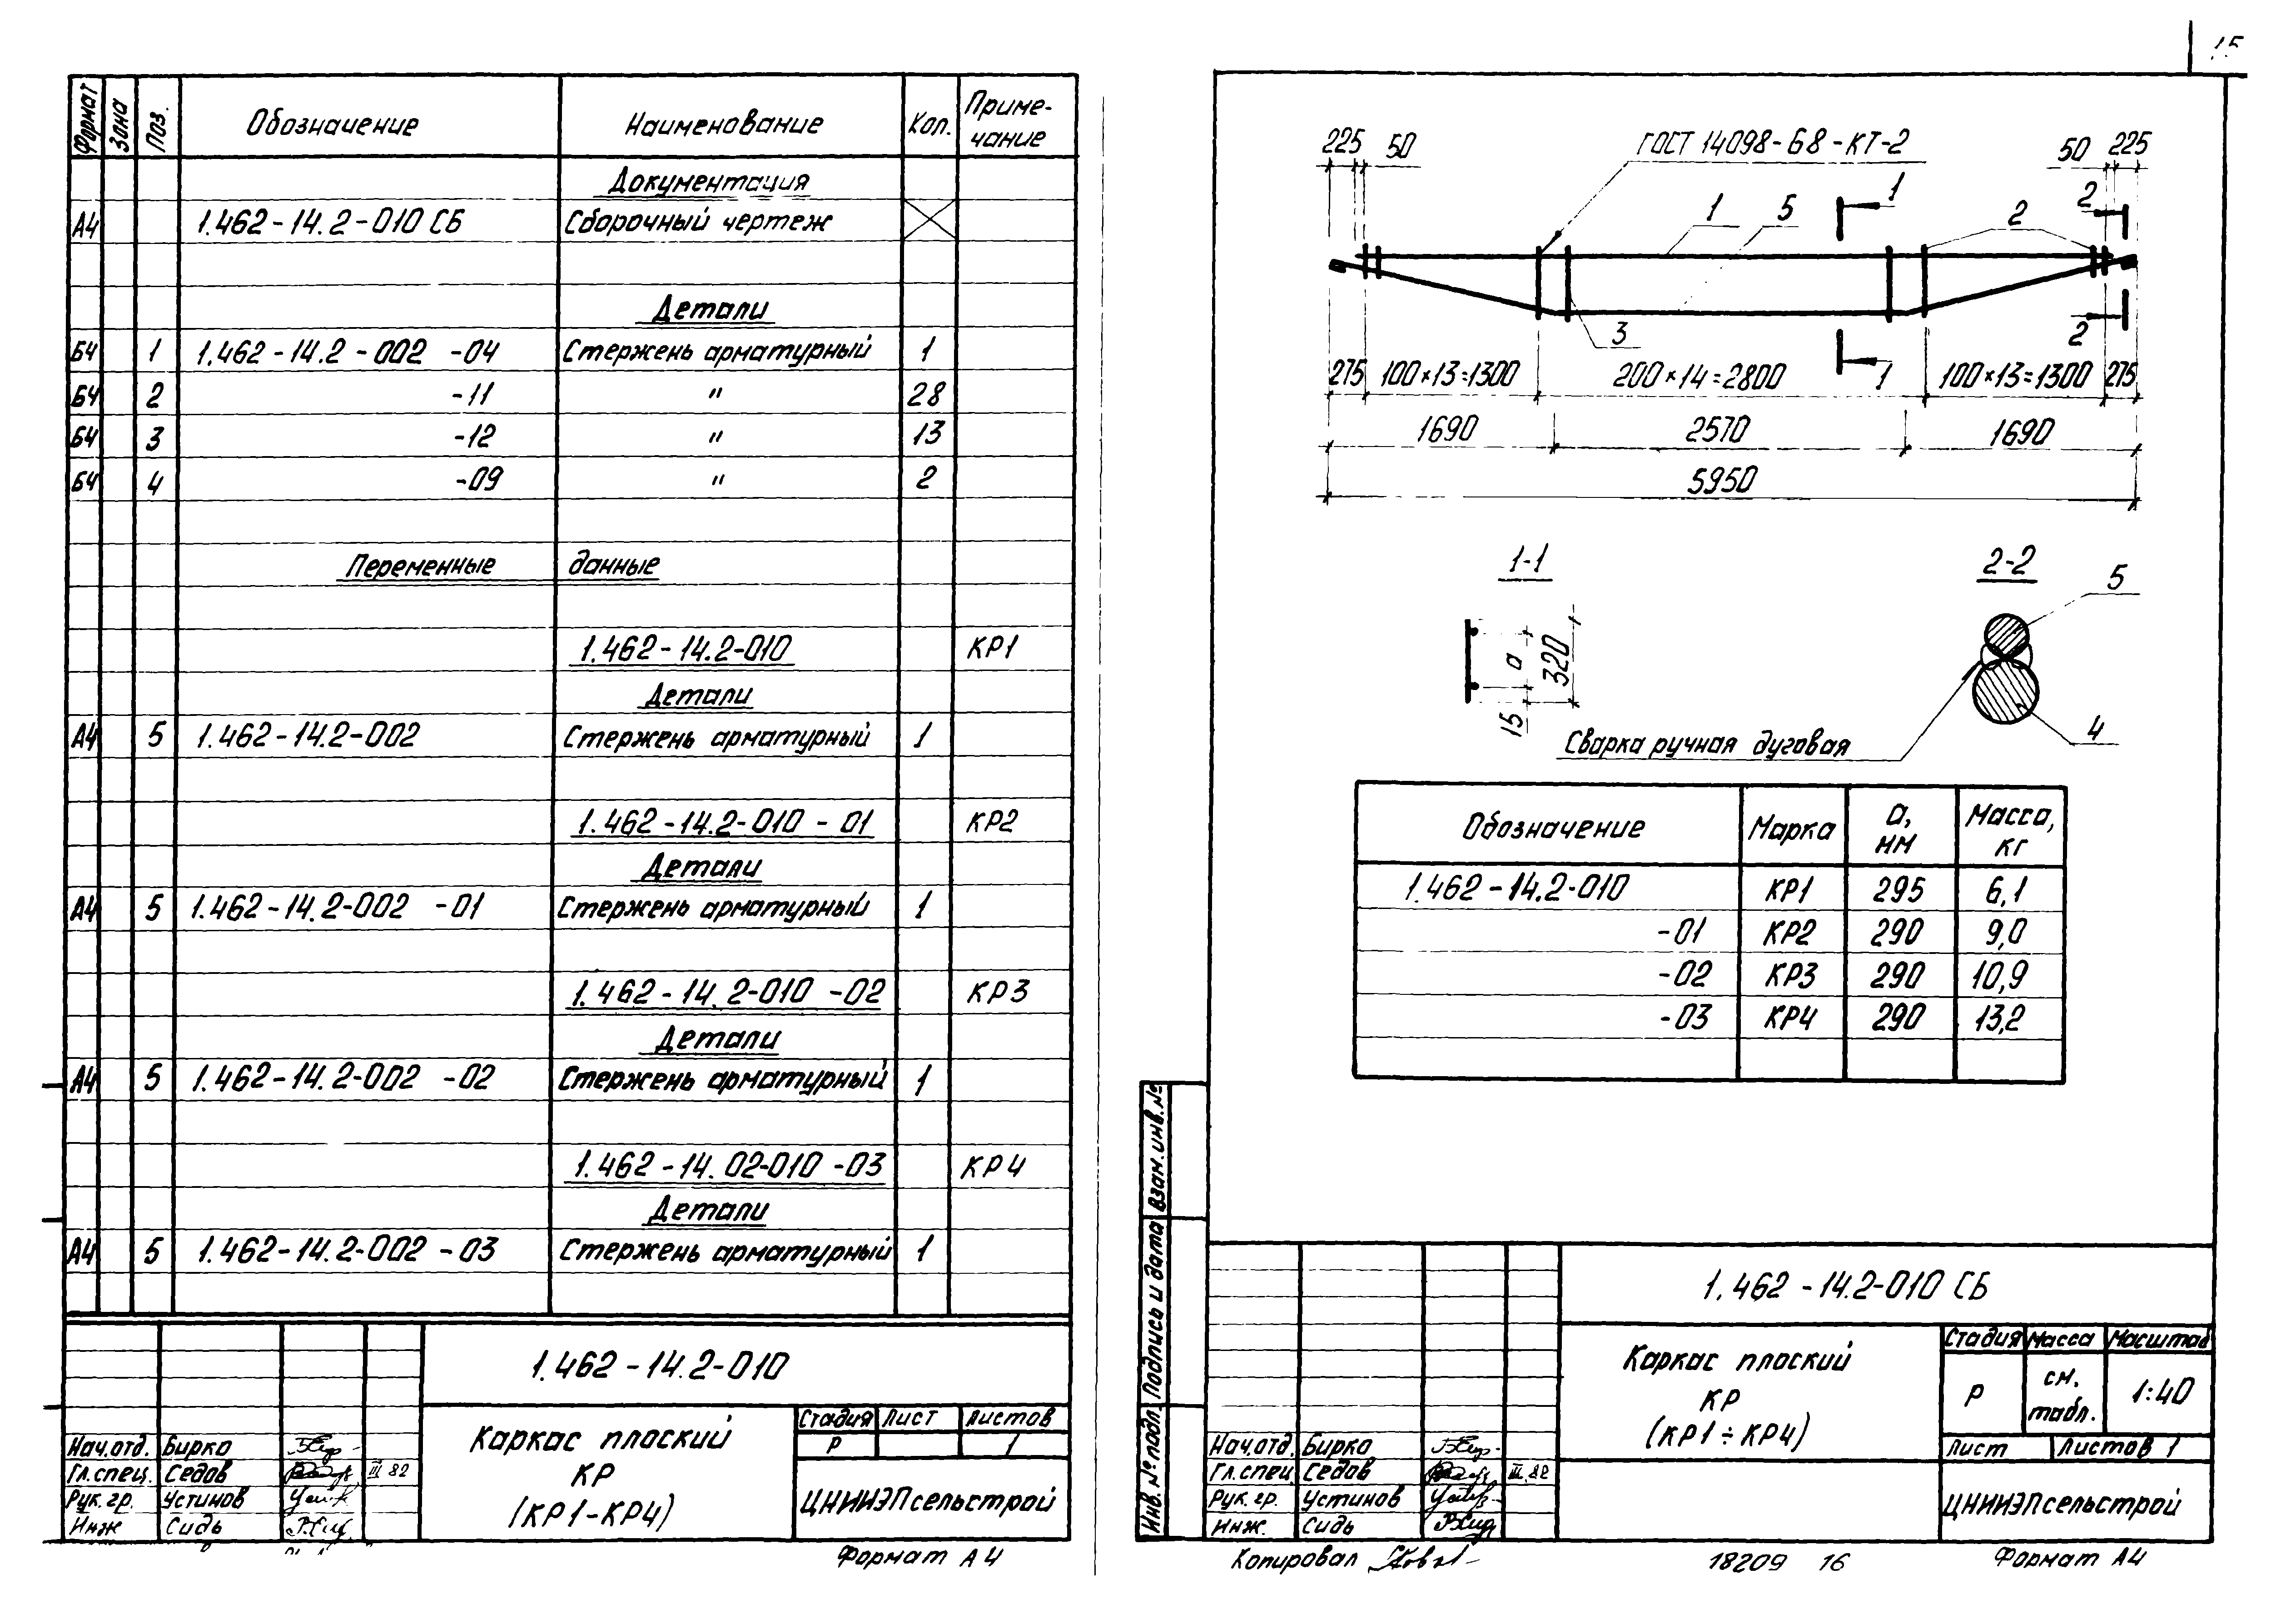 Формат Зона Поз. Обозначение Наименование Кол. Приме-
чание
Документация
А4 1.462-14.2-010 СБ Сборочный чертеж
Детали
Б4 1 1.462-14.2-002 -04 Стержень арматурный 1
Б4 2 -11 " 28
Б4 3 -12 " 13
Б4 4 -09 " 2
Переменные данные
1.462-14.2-010 КР1
Детали
А4 5 1.462-14.2-002 Стержень арматурный 1
1.462-14.2-010 - 01 КР2
Детали
А4 5 1.462-14.2-002 -01 Стержень арматурный 1
1.462-14.2-010 -02 КР3
Детали
А4 5 1.462-14.2-002 -02 Стержень арматурный 1
1.462-14.02-010 -03 КР4
Детали
А4 5 1.462-14.2-002 -03 Стержень арматурный 1
1.462-14.2-010
Каркас плоский
КР
(КР1-КР4)
Стадия Лист Листов
Р 1
ЦНИИЭПсельстрой
Нач.отд. Бирко
Гл.спец. Седов III 82
Рук.гр. Устинов
Инж Сидь
Формат А4
15
225 50 ГОСТ 14098-68-КТ-2 50 225
1 5 1 2 2
3 1 2
275 100×13=1300 200×14=2800 100×13=1300 275
1690 2570 1690
5950
1-1
а 320
15
2-2
5
4
Сварка ручная дуговая
Обозначение Марка а, мм Масса, кг
1.462-14.2-010 КР1 295 6,1
-01 КР2 290 9,0
-02 КР3 290 10,9
-03 КР4 290 13,2
Инв.№подл. Подпись и дата Взам.инв.№
1.462-14.2-010 СБ
Каркас плоский
КР
(КР1÷КР4)
Стадия Масса Масштаб
Р см. табл. 1:40
Лист Листов 1
ЦНИИЭПсельстрой
Нач.отд. Бирко
Гл.спец Седов III.82
Рук.гр. Устинов
Инж. Сидь
Копировал
18209 16
Формат А4